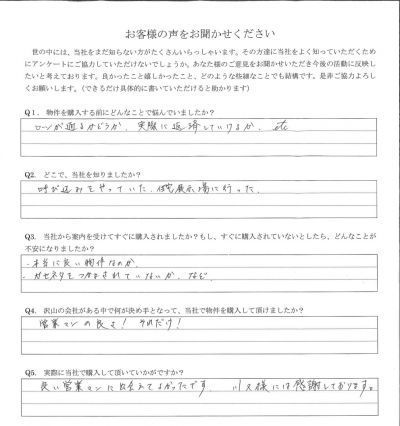 お客様の声をお聞かせください
世の中には、当社をまだ知らない方がたくさんいらっしゃいます。その方達に当社をよく知っていただくため
にアンケートにご協力していただけないでしょうか。あなた様のご意見をお聞かせいただき今後の活動に反映し
たいと考えております。良かったこと嬉しかったこと、どのような些細なことでも結構です。是非ご協力よろし
くお願いします。（できるだけ具体的に書いていただけると助かります）
Q1． 物件を購入する前にどんなことで悩んでいましたか？
ローンが通るかどうか、実際に返済していけるか、etc
Q2． どこで、当社を知りましたか？
呼び込みをやっていた、住宅展示場に行った。
Q3． 当社から案内を受けてすぐに購入されましたか？もし、すぐに購入されていないとしたら、どんなことが
不安になりましたか？
・本当に良い物件なのか、
・ガセネタをつかまされていないか、など
Q4． 沢山の会社がある中で何が決め手となって、当社で物件を購入して頂けましたか？
営業マンの良さ！ それだけ！
Q5． 実際に当社で購入して頂いていかがですか？
良い営業マンに出会えてよかったです。 様には感謝しております。